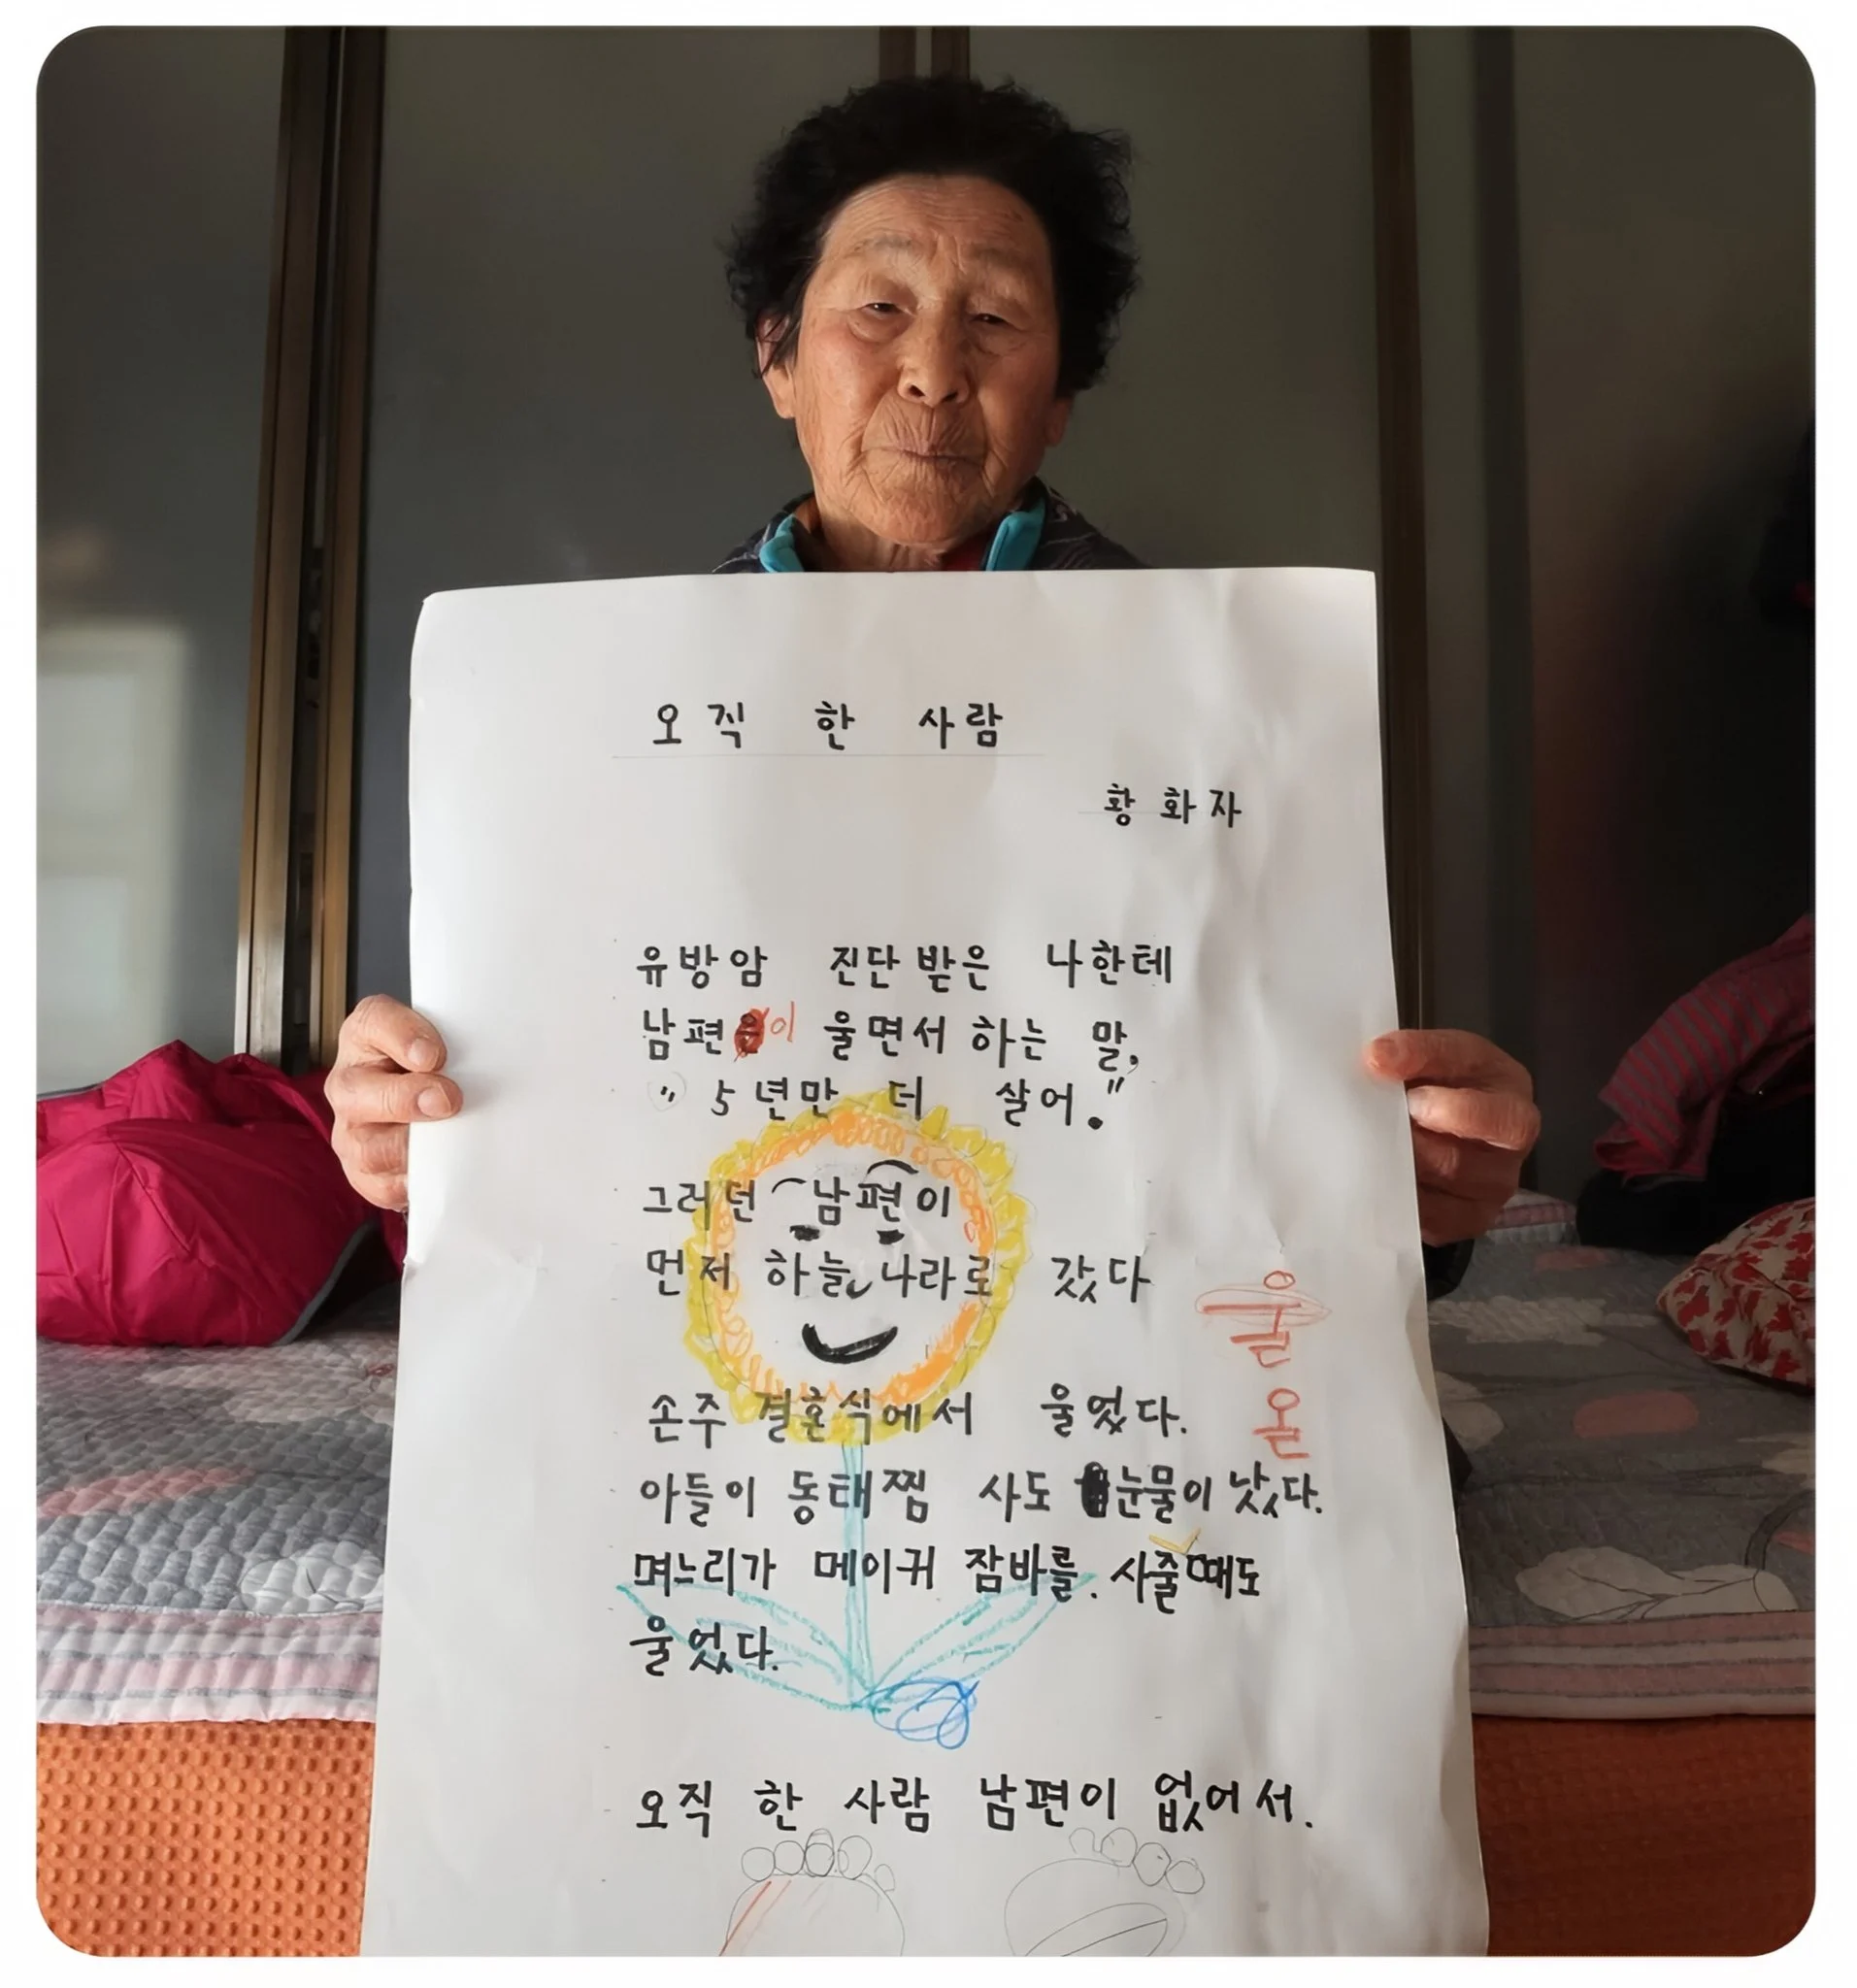 오직 한 사람
황화자
유방암 진단받은 나한테
남편이 울면서 하는 말,
"5년만 더 살어."
그러던 남편이
먼저 하늘나라로 갔다
울
손주 결혼식에서 울었다.
올
아들이 동태찜 사도 눈물이 낫다.
며느리가 메이퀴 잠바를. 사줄때도
울었다.
오직 한 사람 남편이 없어서.